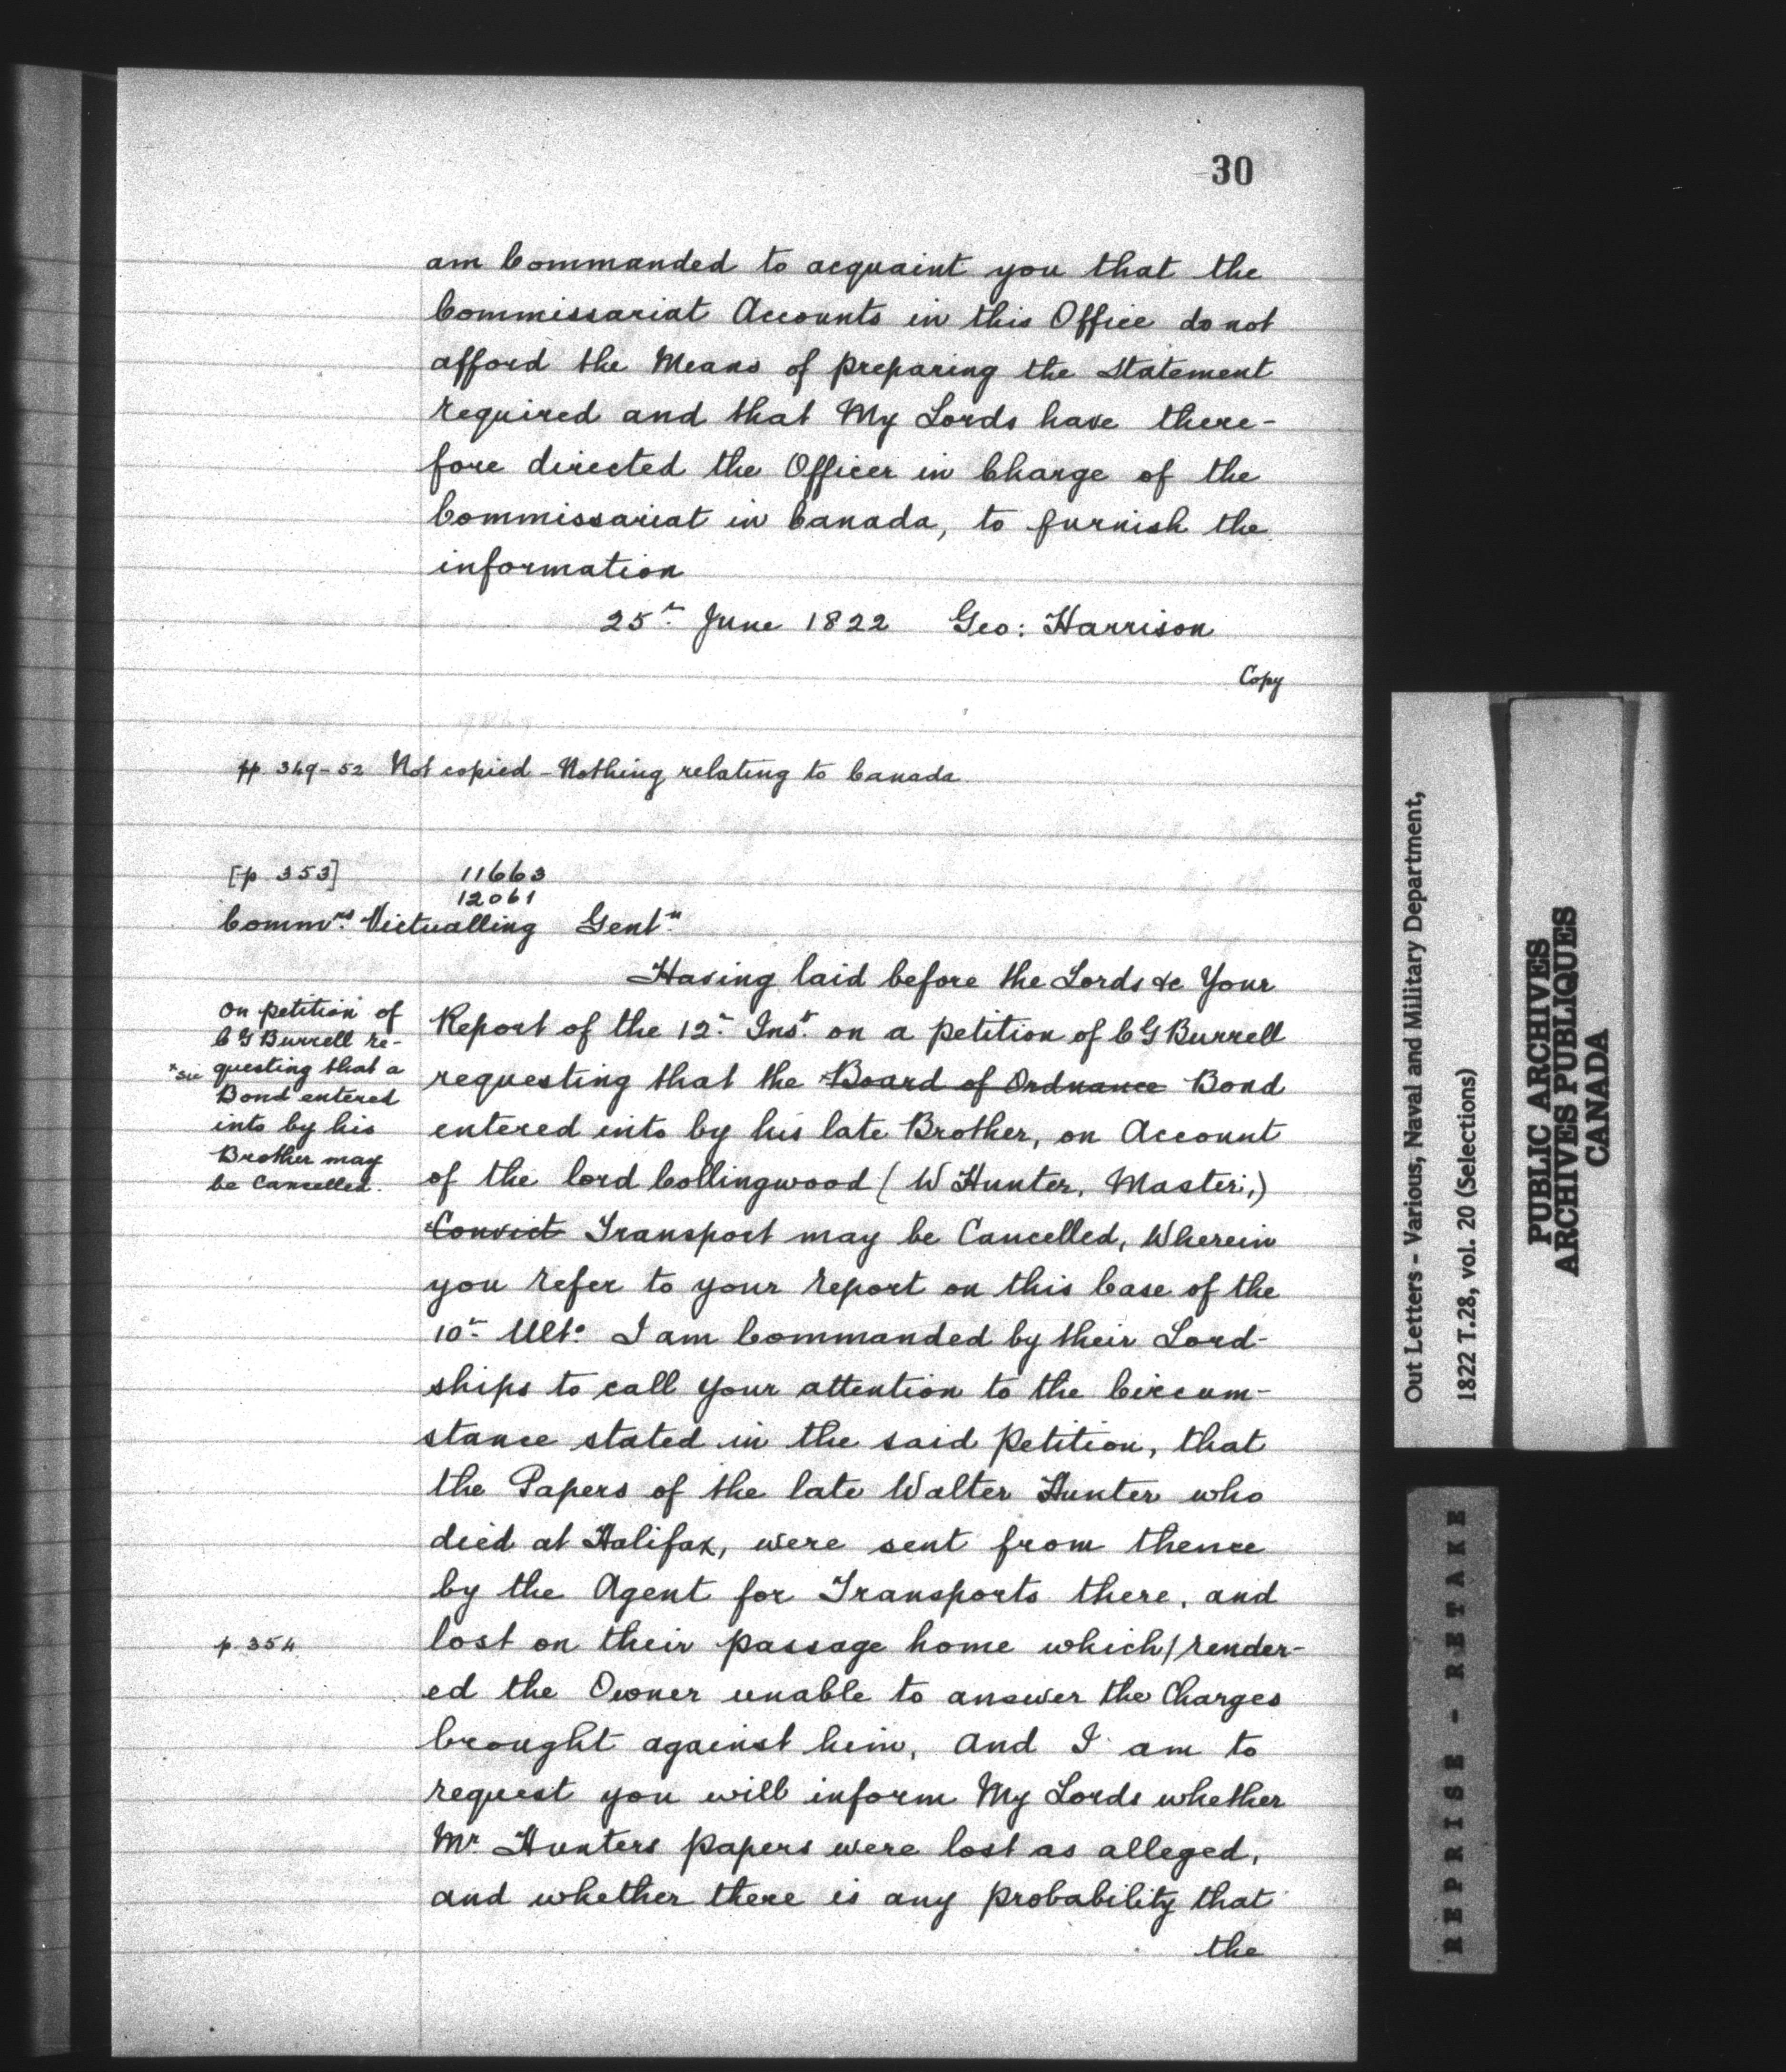 30
am Commanded to acquaint you that the
Commissariat Accounts in this Office do not
afford the Means of preparing the Statement
required and that My Lords have there-
fore directed the Officer in Charge of the
Commissariat in Canada, to furnish the
information
25th June 1822 Geo: Harrison
Copy
pp 349-52 Not copied - Nothing relating to Canada
[p 353]
11663
12061
Commrs. Victualling Gentn
Having laid before the Lords &c Your
Report of the 12th Inst. on a petition of C G Burrell
requesting that the Board of Ordnance Bond
entered into by his late Brother, on Account
of the lord Collingwood (W Hunter, Master,)
*Convict Transport may be Cancelled, Wherein
you refer to your report on this Case of the
10th Ulto. I am Commanded by their Lord-
ships to call your attention to the Circum-
stance stated in the said petition, that
the Papers of the late Walter Hunter who
died at Halifax, were sent from thence
by the Agent for Transports there, and
lost on their passage home which/render-
ed the Owner unable to answer the Charges
brought against him, and I am to
request you will inform My Lords whether
Mr. Hunters papers were lost as alleged,
and whether there is any probability that
the
On petition of
C G Burrell re-
*sic questing that a
Bond entered
into by his
Brother may
be Cancelled.
p. 354
Out Letters - Various, Naval and Military Department,
1822 T.28, vol. 20 (Selections)
PUBLIC ARCHIVES
ARCHIVES PUBLIQUES
CANADA
REPRISE - RETAKE